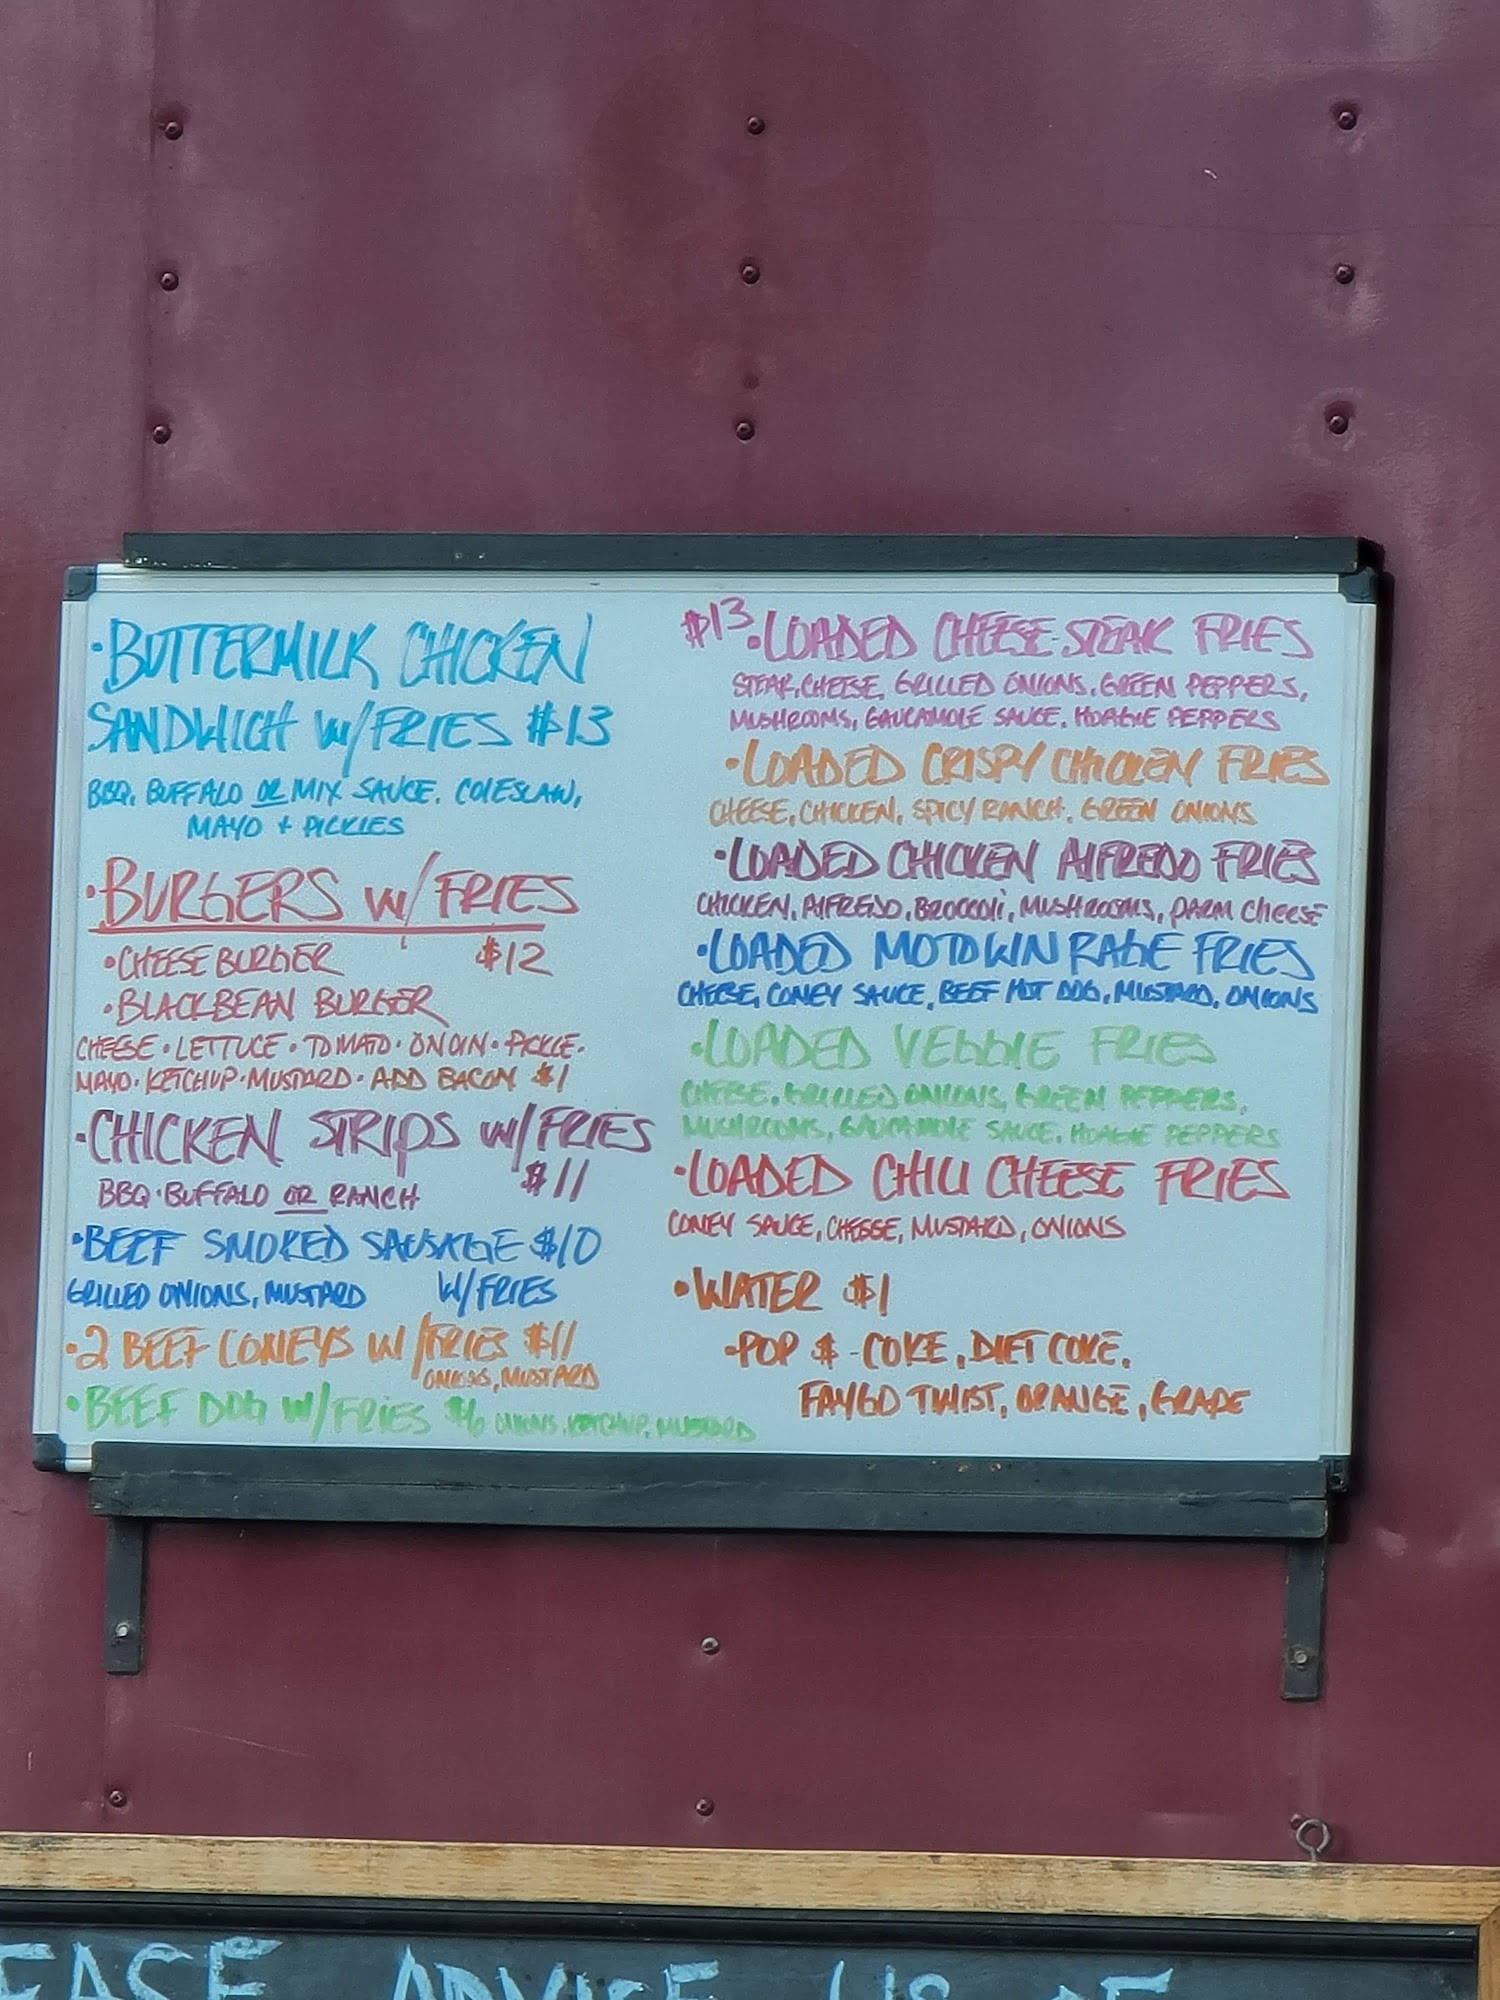 •BUTTERMILK CHICKEN
SANDWICH W/FRIES $13
BBQ, BUFFALO OR MIX SAUCE, COLESLAW,
MAYO + PICKLES
•BURGERS W/FRIES
•CHEESEBURGER $12
•BLACKBEAN BURGER
CHEESE•LETTUCE•TOMATO•ONOIN•PICKLE•
MAYO•KETCHUP•MUSTARD•ADD BACON $1
•CHICKEN STRIPS W/FRIES
BBQ•BUFFALO OR RANCH $11
•BEEF SMOKED SAUSAGE $10
GRILLED ONIONS, MUSTARD W/FRIES
•2 BEEF CONEYS W/FRIES $11
ONIONS, MUSTARD
•BEEF DOG W/FRIES $6 ONIONS, KETCHUP, MUSTARD
$13 •LOADED CHEESE-STEAK FRIES
STEAK, CHEESE, GRILLED ONIONS, GREEN PEPPERS,
MUSHROOMS, GAUCAMOLE SAUCE, HOAGIE PEPPERS
•LOADED CRISPY CHICKEN FRIES
CHEESE, CHICKEN, SPICY RANCH, GREEN ONIONS
•LOADED CHICKEN ALFREDO FRIES
CHICKEN, ALFREDO, BROCCOLI, MUSHROOMS, PARM CHEESE
•LOADED MOTOWN RAGE FRIES
CHEESE, CONEY SAUCE, BEEF HOT DOG, MUSTARD, ONIONS
•LOADED VEGGIE FRIES
CHEESE, GRILLED ONIONS, GREEN PEPPERS,
MUSHROOMS, GAUCAMOLE SAUCE, HOAGIE PEPPERS
•LOADED CHILI CHEESE FRIES
CONEY SAUCE, CHEESE, MUSTARD, ONIONS
•WATER $1
•POP $ - COKE, DIET COKE,
FAYGO TWIST, ORANGE, GRAPE
EASE ADVISE US OF